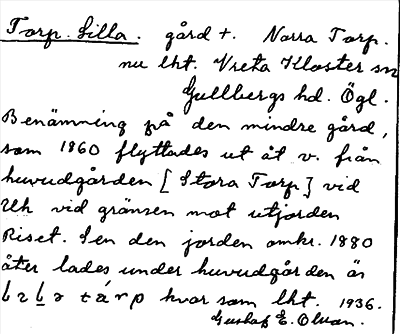 Torp. Lilla. gård †. Norra Torp.
nu lht. Vreta Kloster sn
Gullbergs hd. Ögl.
Benämning på den mindre gård,
som 1860 flyttades ut åt v. från
huvudgården [Stora Torp] vid
vid gränsen mot utjorden
Riset. Sen den jorden omkr. 1880
åter lades under huvudgården är
tárp kvar som lht. 1936.
Gustaf E. Olson.